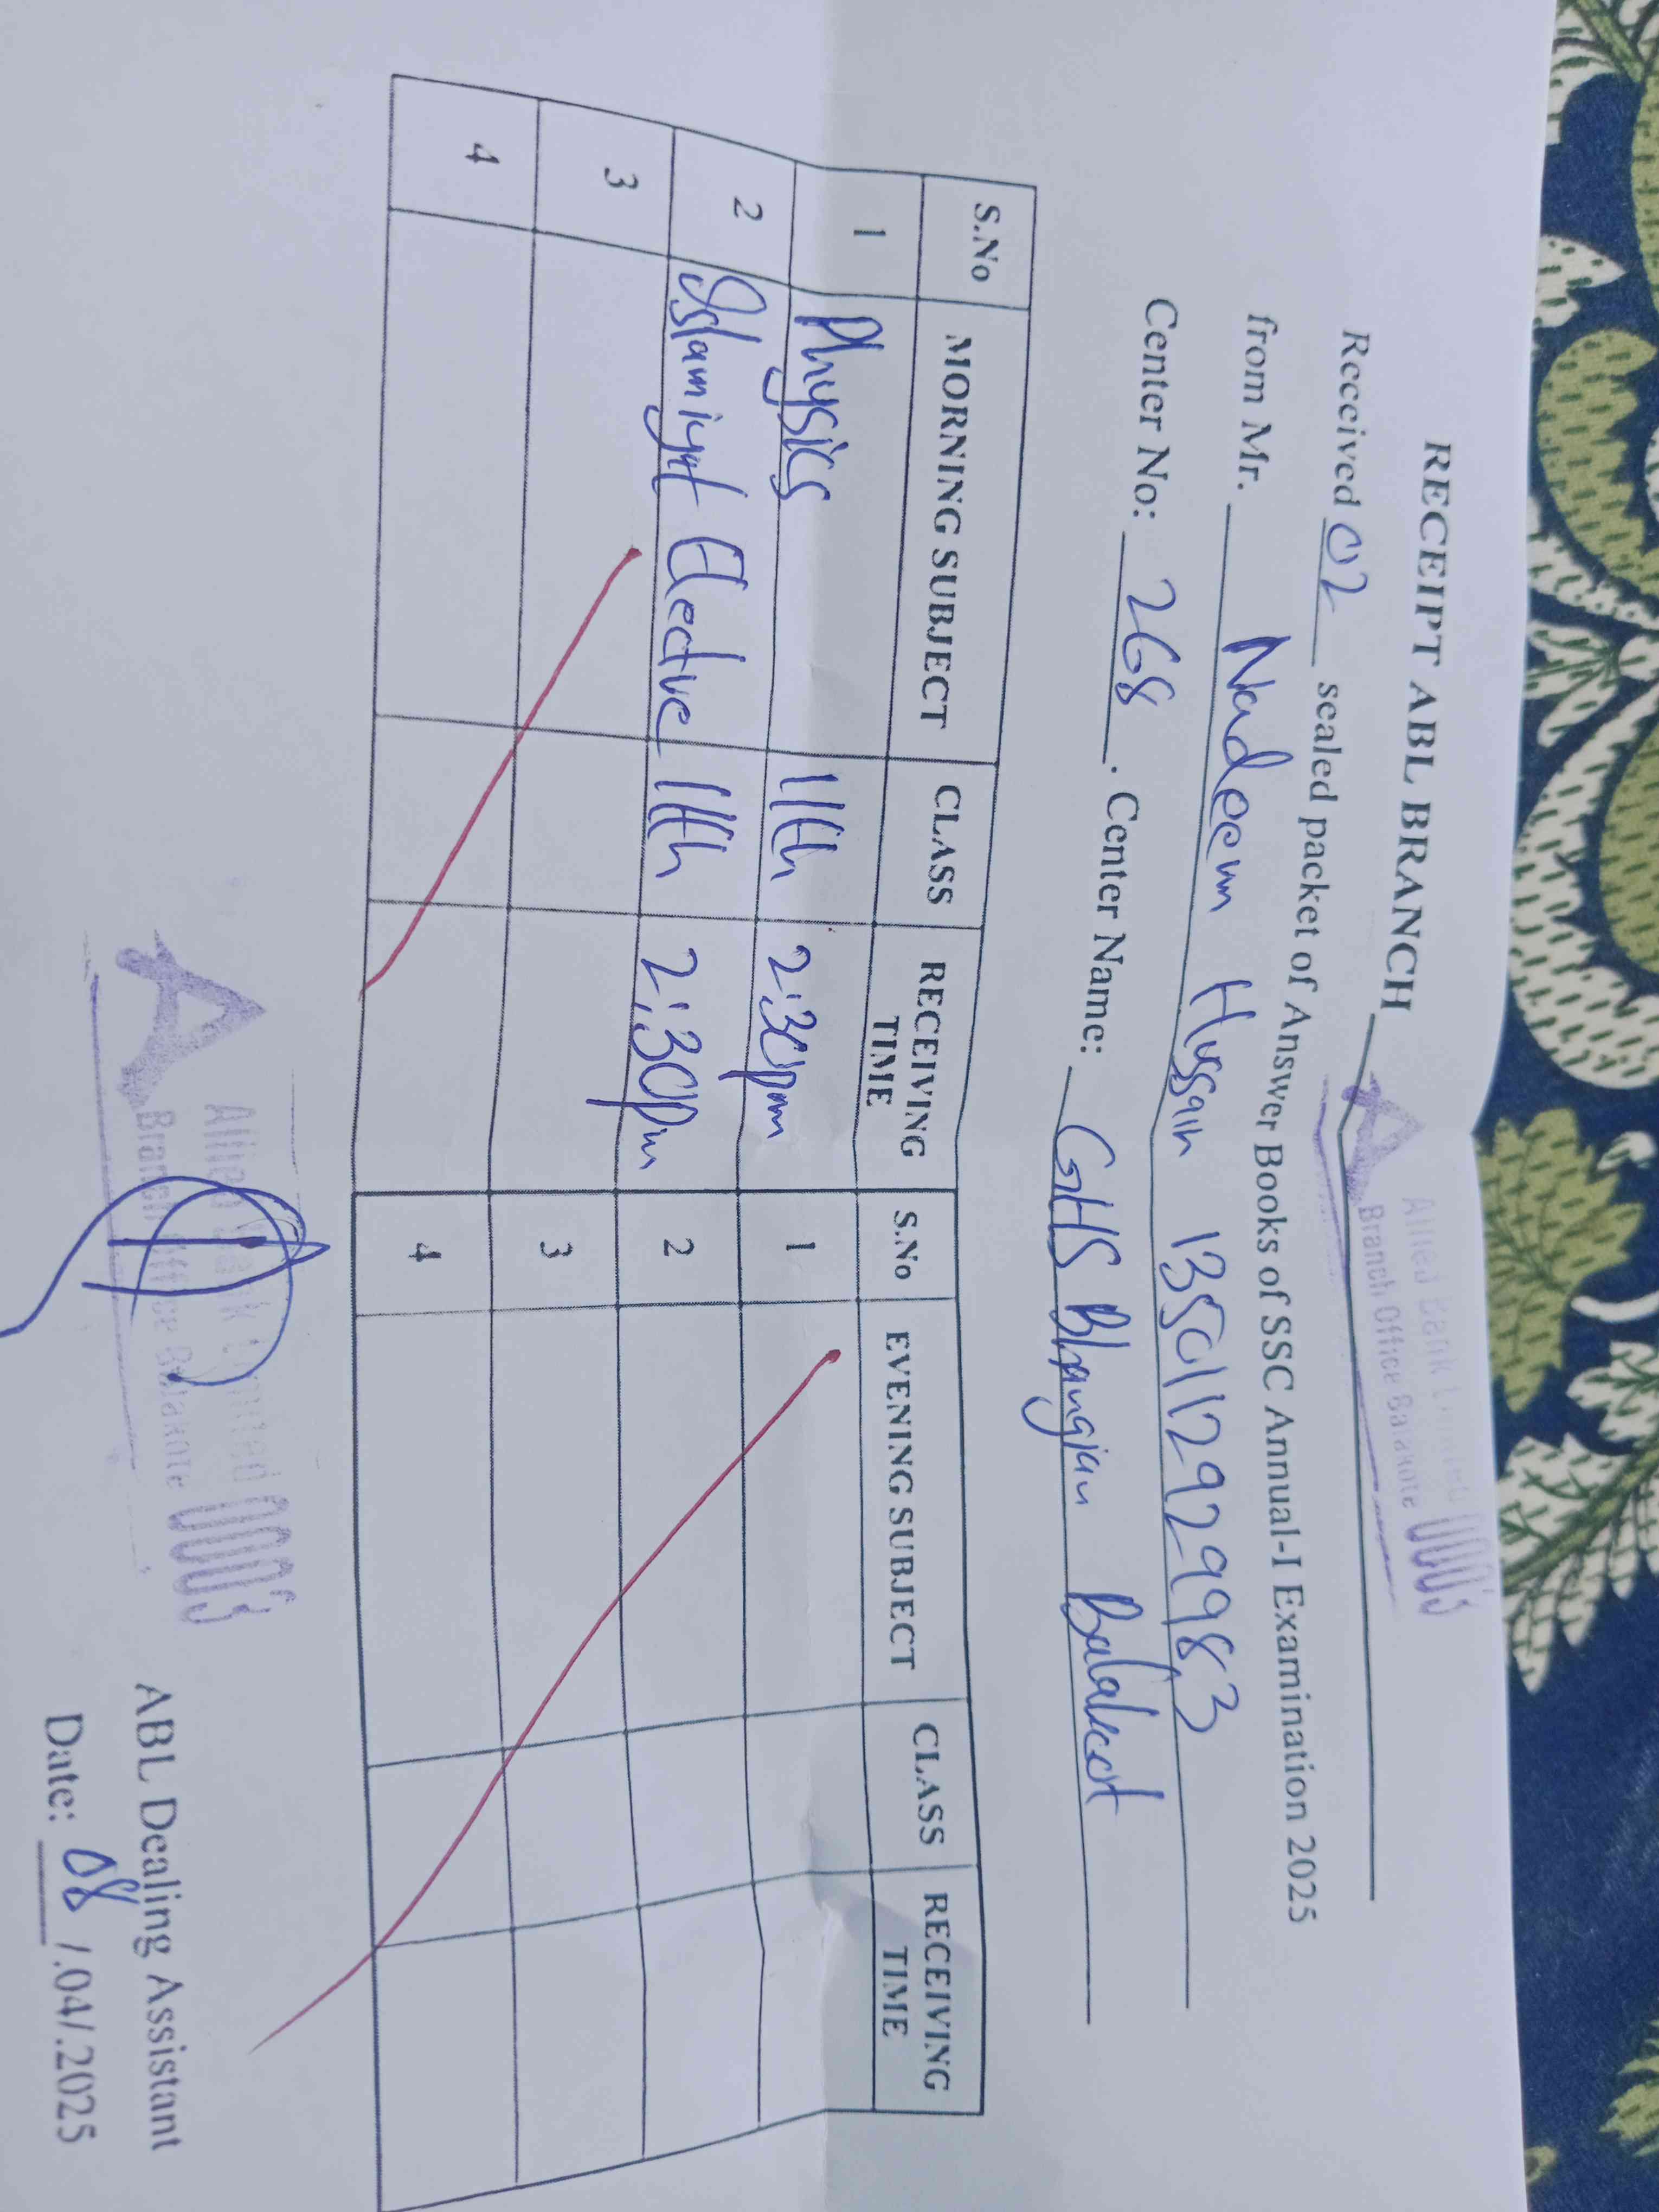 RECEIPT ABL BRANCH
Allied Bank Limited
Branch Office Balakote
Received 02 sealed packet of Answer Books of SSC Annual-I Examination 2025
from Mr. Nadeem Hussain 1350112929983
Center No: 268 . Center Name: GHS Bhangian Balakot
S.No MORNING SUBJECT CLASS RECEIVING TIME S.No EVENING SUBJECT CLASS RECEIVING TIME
1 Physics 11th 2:30pm 1
2 Islamiyat Elective 11th 2:30pm 2
3 3
4 4
Allied Bank Limited
Branch Office Balakote
ABL Dealing Assistant
Date: 08 /.04/.2025